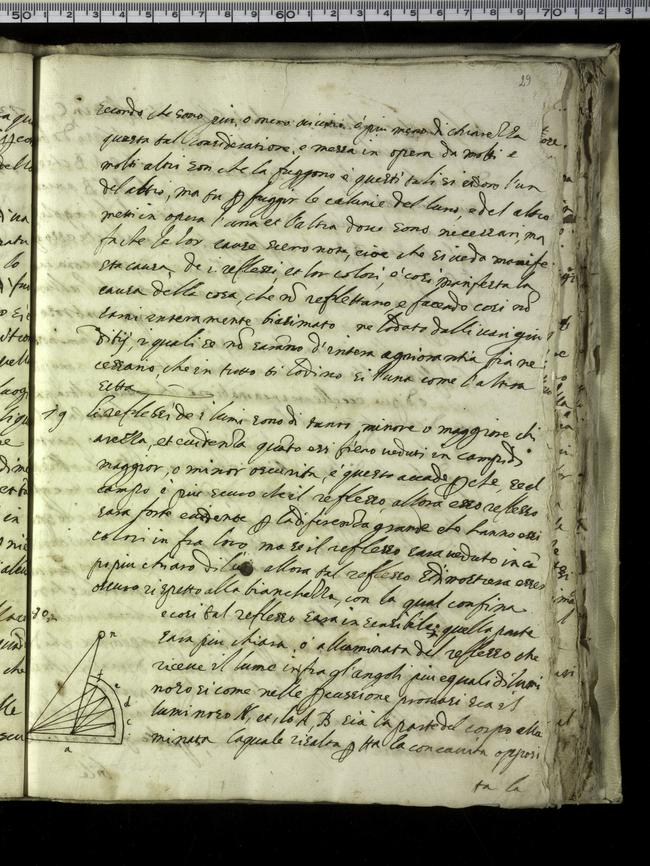 29
secondo che sono piu, o meno oscuri, e piu meno di chiarezza
questa tal consideratione, e messa in opera da molti e
molti altri son che la fuggono e questi tali si ridono l'un
del altro, ma tu p fuggir le calunie del luno, e del altro
metti in opera l'una et l'altra doue sono necessari, ma
fa che le lor cause sieno note, cioe che si ueda manife
sta causa, de i reflessi et lor colori, e cosi manifesta la
causa della cosa, che nō reflettano e facendo cosi nō
sarai interamente biasimato ne lodato dalli uari giu
ditij, i quali se nō saranno d'intera agniorantia fia ne
cessario, che in tutto ti lodino si l'una come l'altra
setta
79 li reflessi de i lumi sono di tanta, minore o maggiore chi
arezza, et euidenza, quāto essi fieno ueduti in campi di
maggior, o minor oscurita, e questo accade p che, se el
campo è piu scuro che il reflesso, allora esso reflesso
sara forte euidente p la diferenza grande che hanno essi
colori in fra loro, ma se il reflesso sara ueduto in cā
po piu chiaro di lui allora tal reflesso si dimostrera esser
oscuro rispetto alla bianchezza, con la qual confina
e cosi tal reflesso sara insensibile: quella parte
80 sara piu chiara, o alluminata del reflesso che
riceue il lume infra gl'angoli piu equali di lumi
noso si come nelle p cussione prouasi sia el
luminoso N, et, lo A B sia la parte del corpo allu
minata laquale risalta p tta la concauita opposi
ta la
n
f
e
d
c
a